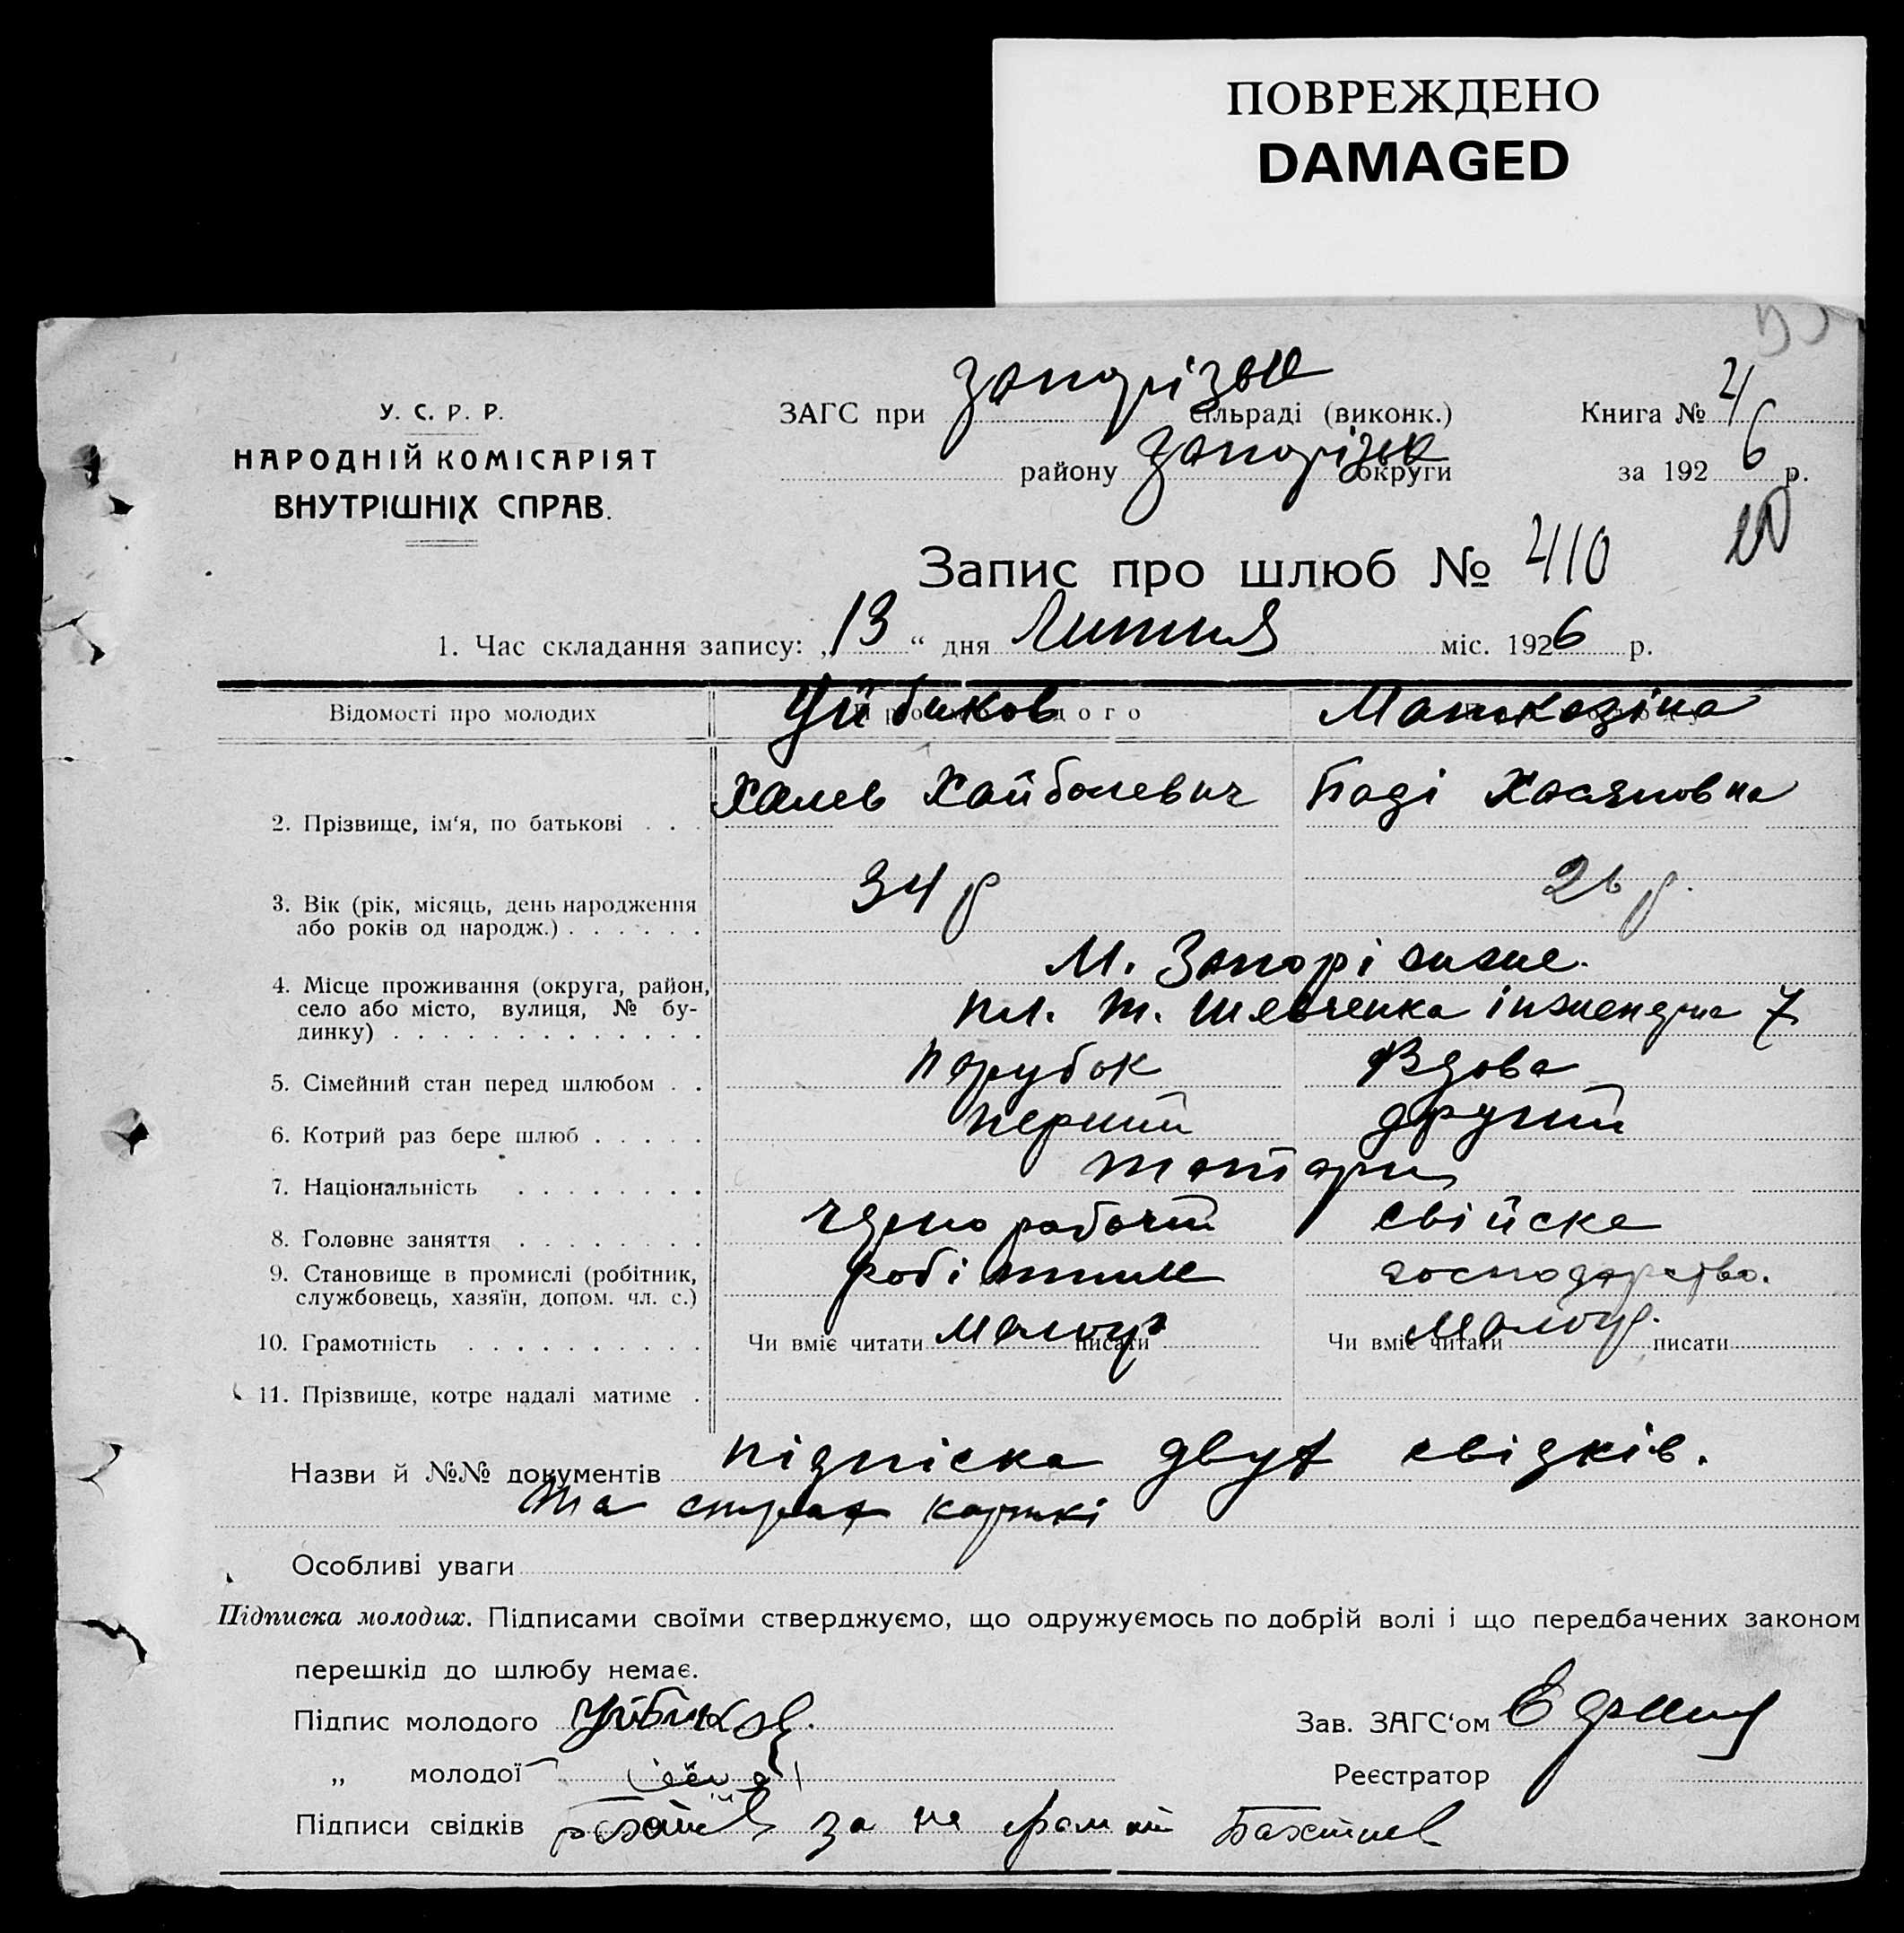 ПОВРЕЖДЕНО
DAMAGED
У. С. Р. Р.
НАРОДНІЙ КОМІСАРІЯТ
ВНУТРІШНІХ СПРАВ.
ЗАГС при сільраді (виконк.)
Книга № 4
району Запорізьк округи
за 1926 р.
Запис про шлюб № 410
1. Час складання запису: „13“ дня Липня міс. 1926 р.
Відомості про молодих
Уйбиков
2. Прізвище, ім'я, по батькові . . . Халев Хайбалевич
3. Вік (рік, місяць, день народження або років од народж.) . . . . . . 34 р 26 р.
4. Місце проживання (округа, район, М. Запоріжже.
село або місто, вулиця, № бу-
динку) . . . . . . . . . . . . . пл. т. Шевченка інженерна 7
5. Сімейний стан перед шлюбом . . Парубок Вдова
6. Котрий раз бере шлюб . . . . . Перший другий
7. Національність . . . . . . . . татари
8. Головне заняття . . . . . . . . чернорабочий свійске
9. Становище в промислі (робітник, робітник господарство.
службовець, хазяїн, допом. чл. с.)
10. Грамотність . . . . . . . . . . Чи вміє читати малогр писати Чи вміє читати малогр. писати
11. Прізвище, котре надалі матиме .
Назви й №№ документів підпіска двух свідків.
та страх карткі
Особливі уваги
Підписка молодих. Підписами своїми стверджуємо, що одружуємось по добрій волі і що передбачених законом
перешкід до шлюбу немає.
Підпис молодого Уйбиков.
Зав. ЗАГС'ом
„ молодої
Реєстратор
Підписи свідків за не грамот